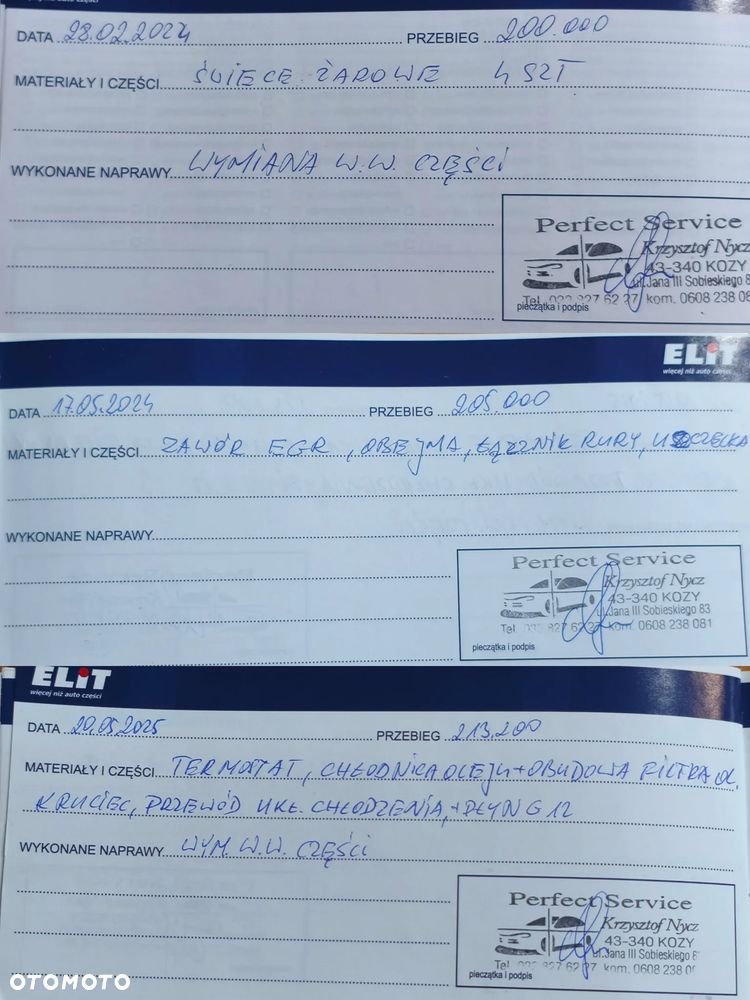 DATA 28.02.2024 PRZEBIEG 200.000
MATERIAŁY I CZĘŚCI ŚWIECE ŻAROWE 4 SZT
WYKONANE NAPRAWY WYMIANA W.W. CZĘŚCI
Perfect Service
Krzysztof Nycz
43-340 KOZY
ul.Jana III Sobieskiego 8
Tel. 827 62 27 kom. 0608 238 08
pieczątka i podpis
ELIT
więcej niż auto części
DATA 17.05.2024 PRZEBIEG 205.000
MATERIAŁY I CZĘŚCI ZAWÓR EGR, OBEJMA, ŁĄCZNIK RURY, USZCZELKA
WYKONANE NAPRAWY
Perfect Service
Krzysztof Nycz
43-340 KOZY
ul.Jana III Sobieskiego 83
Tel. 827 62 27 kom. 0608 238 081
pieczątka i podpis
ELIT
więcej niż auto części
DATA 20.05.2025 PRZEBIEG 213.200
MATERIAŁY I CZĘŚCI TERMOSTAT, CHŁODNICA OLEJU + OBUDOWA FILTRA OL.
KRUCIEC, PRZEWÓD UKŁ. CHŁODZENIA, + PŁYN G12
WYKONANE NAPRAWY WYM. W.W. CZĘŚCI
Perfect Service
Krzysztof Nycz
43-340 KOZY
ul.Jana III Sobieskiego 8
Tel. 827 62 27 kom. 0608 238 0
pieczątka i podpis
OTOMOTO